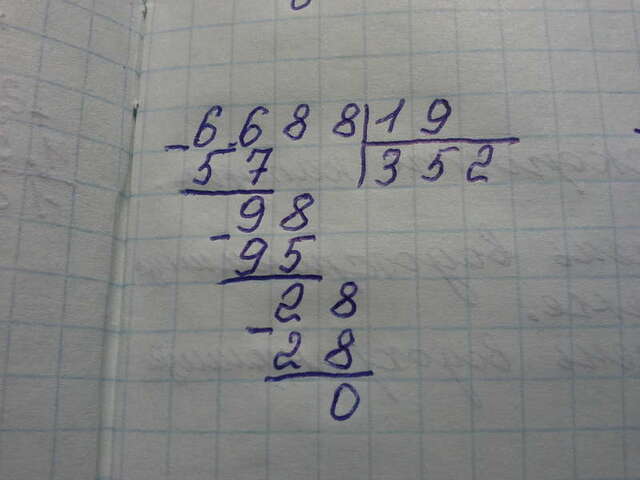 6688 19
57 352
98
95
28
28
0